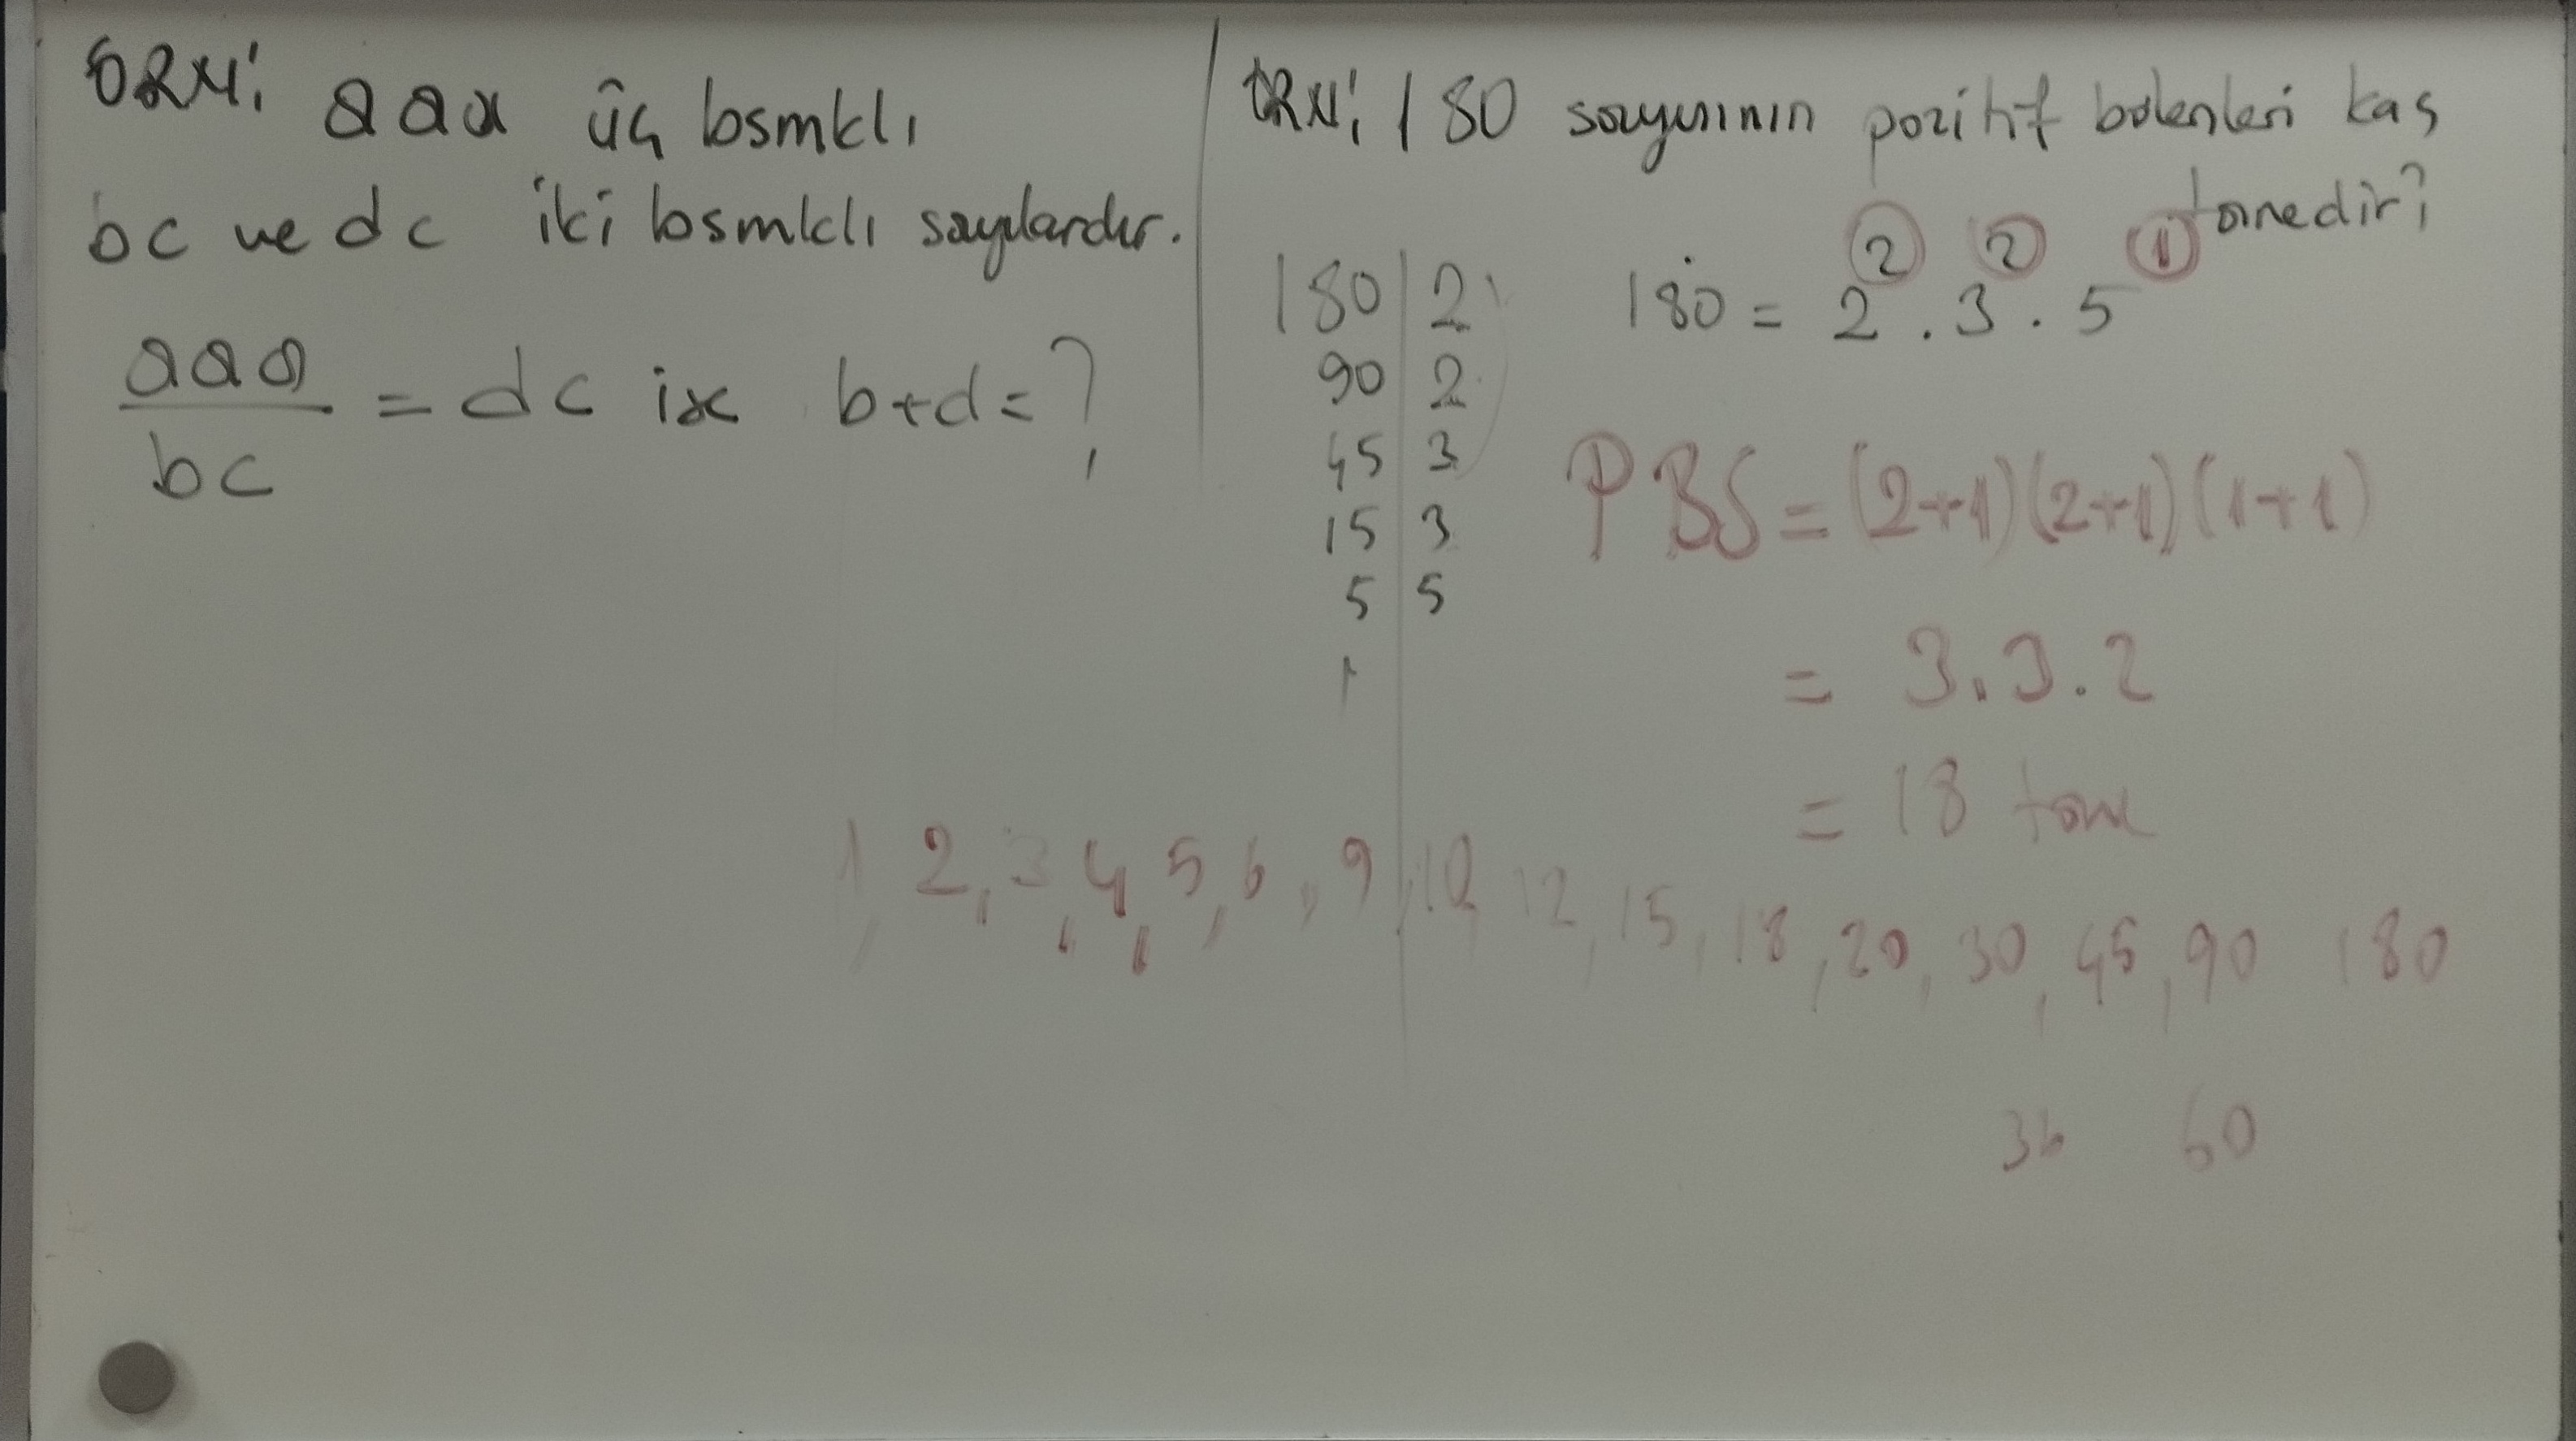 ÖRN: aaa üç bsmklı
bc ve dc iki bsmklı sayılardır.
aaa/bc = dc ise b+d=?
ÖRN: 180 sayısının pozitif bölenleri kaç
tanedir?
180 = 2² . 3² . 5¹
180 | 2
90 | 2
45 | 3
15 | 3
5 | 5
1
PBS = (2+1)(2+1)(1+1)
= 3.3.2
= 18 tane
1, 2, 3, 4, 5, 6, 9, 10, 12, 15, 18, 20, 30, 45, 90 180
36 60